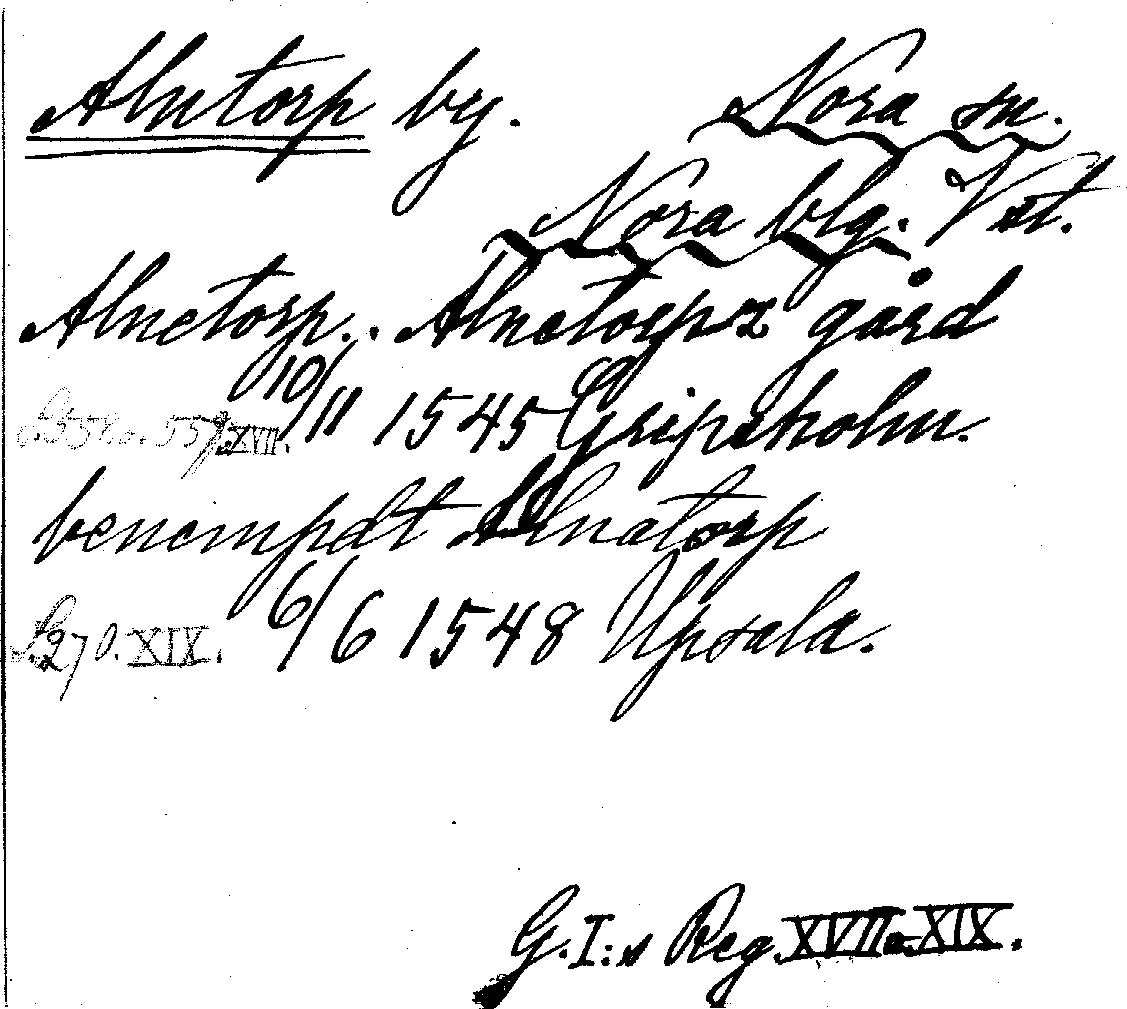 Alntorp by. Nora sn.
Nora blg. Vstm.
Alnetorp.. Alnetorpz gård
S. 558 o. 559. XVII. 10/11 1545 Gripsholm.
benempdt Alnatorp
S. 270. XIX. 6/6 1548 Upsala.
G.I:s Reg. XVII o. XIX.